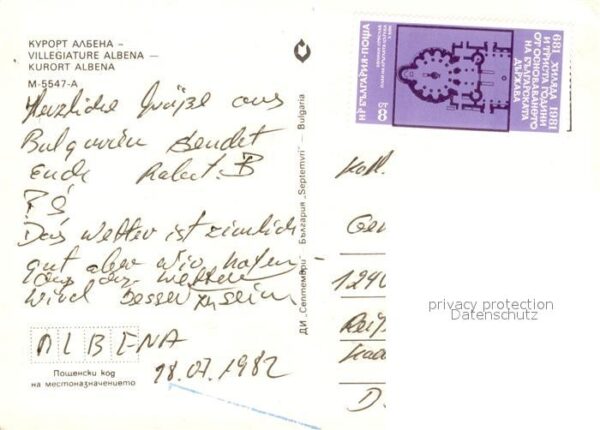 КУРОРТ АЛБЕНА –
VILLEGIATURE ALBENA –
KURORT ALBENA
М-5547-А
Herzliche Grüße aus
Bulgarien Sendet
Eude Robert. B
PS
Das Wetter ist zimlich
gut aber wir hofen
das das Wetter
wird besser zu sein
ALBENA
18.07.1982
Пощенски код
на местоназначението
ДИ „Септември" България „Septemvri" – Bulgaria
НР БЪЛГАРИЯ·ПОЩА
8 ст
681 ХИЛЯДА 1981
И ТРИСТА ГОДИНИ
ОТ ОСНОВАВАНЕТО
НА БЪЛГАРСКАТА
ДЪРЖАВА
1240
D.
privacy protection
Datenschutz